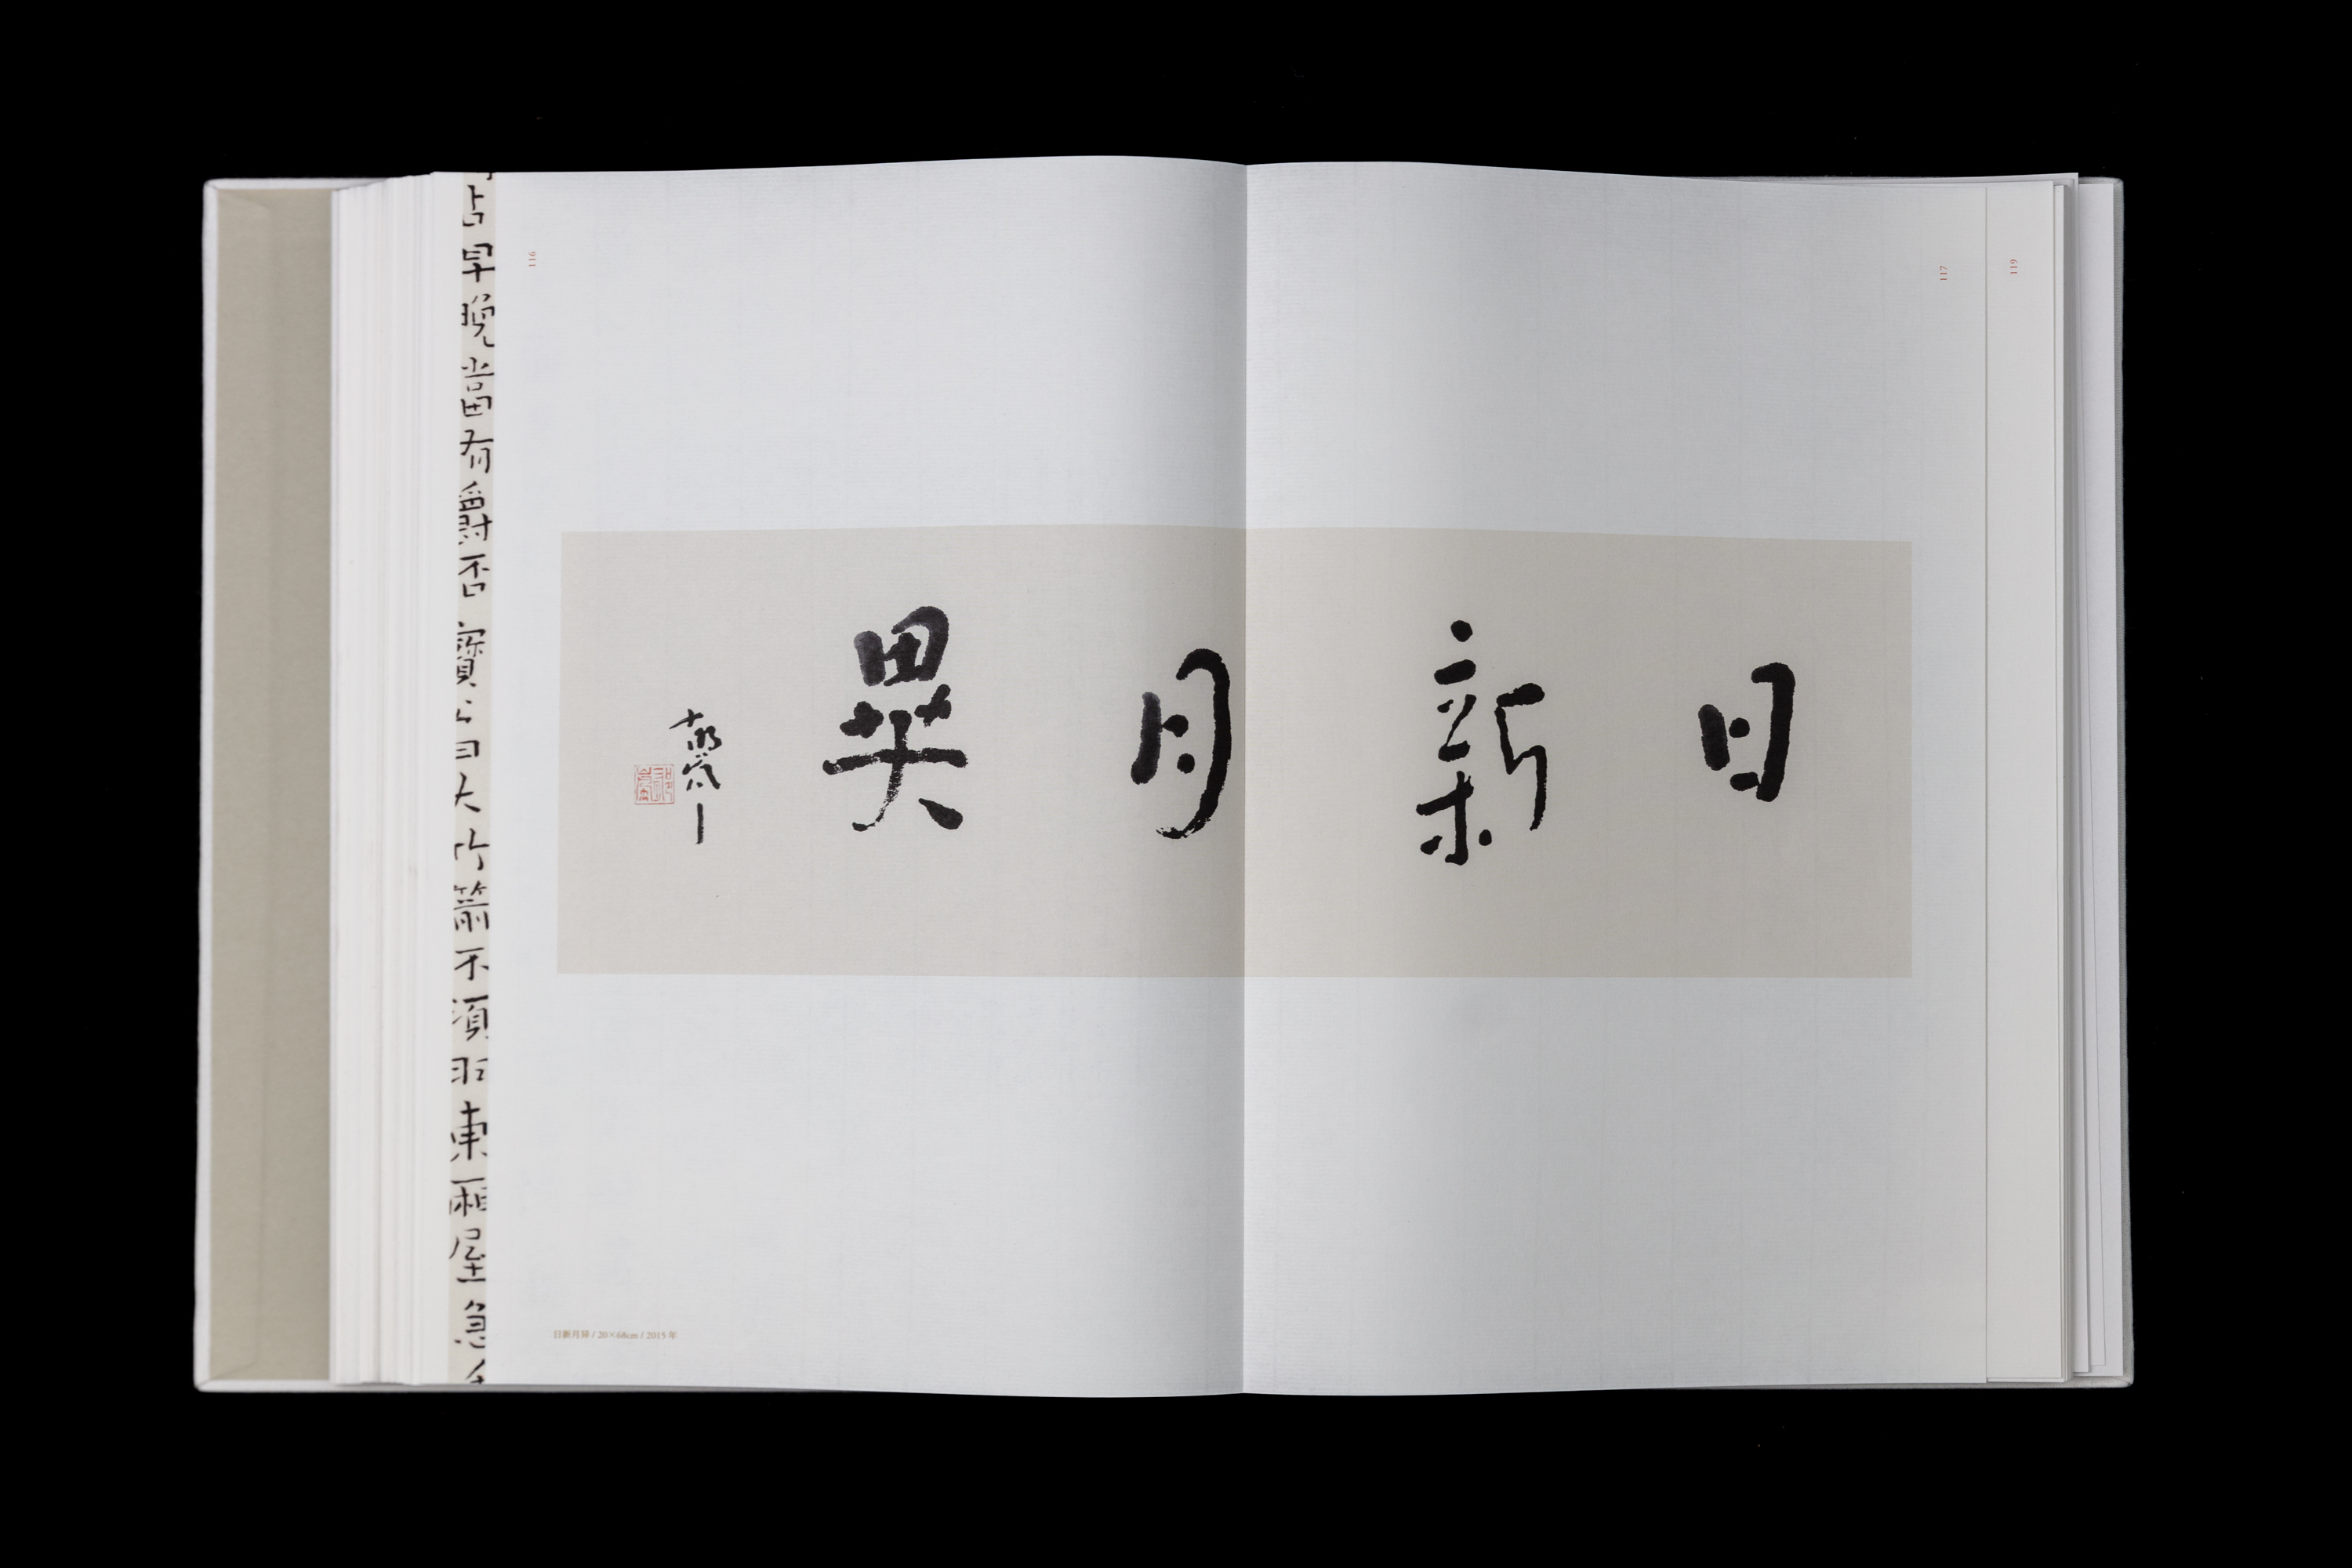 日新月異
116
117
119
占早晚當有爵否寶公曰大竹箭不須羽東廂屋急
日新月异 / 20×68cm / 2015 年